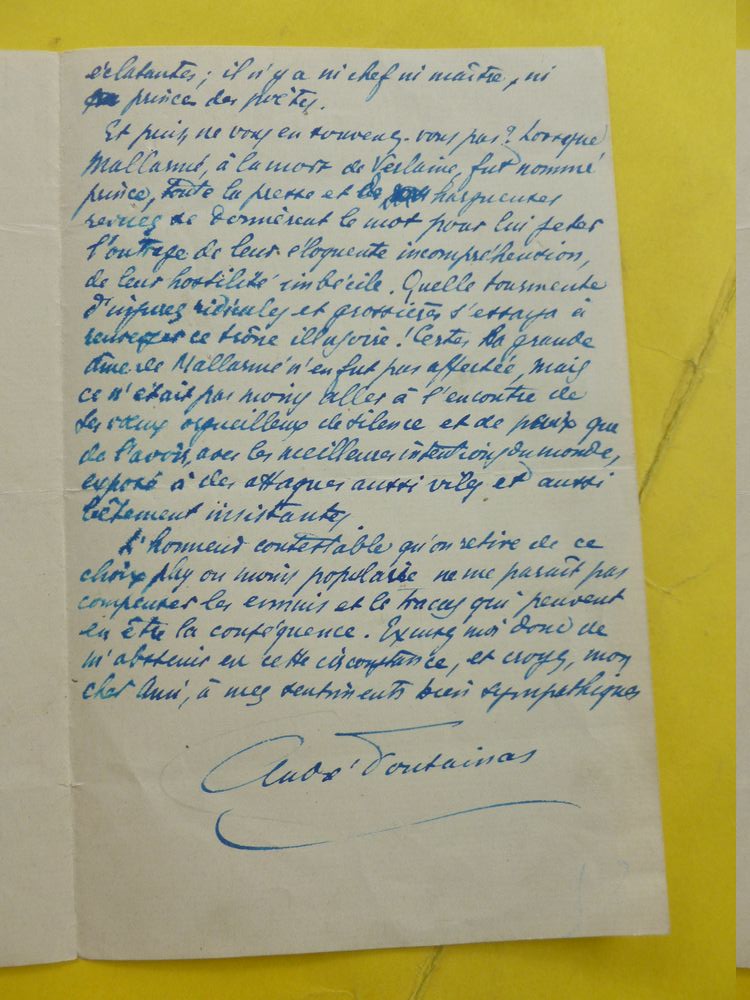 éclatantes ; il n'y a ni chef ni maître, ni
prince des poètes.
Et puis, ne vous en souvenez-vous pas ? Lorsque
Mallarmé, à la mort de Verlaine, fut nommé
prince, toute la presse et les hargneuses
revues se donnèrent le mot pour lui jeter
l'outrage de leur éloquente incompréhension,
de leur hostilité imbécile. Quelle tourmente
d'injures ridicules et grossières s'essaya à
renverser ce trône illusoire ! Certes la grande
âme de Mallarmé n'en fut pas affectée, mais
ce n'était pas moins aller à l'encontre de
ses vœux orgueilleux de silence et de paix que
de l'avoir, avec les meilleures intentions du monde,
exposé à des attaques aussi viles et aussi
bêtement insistantes
L'honneur contestable qu'on retire de ce
choix plus ou moins populaire ne me paraît pas
compenser les ennuis et le tracas qui peuvent
en être la conséquence. Excusez moi donc de
m'abstenir en cette circonstance, et croyez, mon
cher Ami, à mes sentiments bien sympathiques
André Fontainas